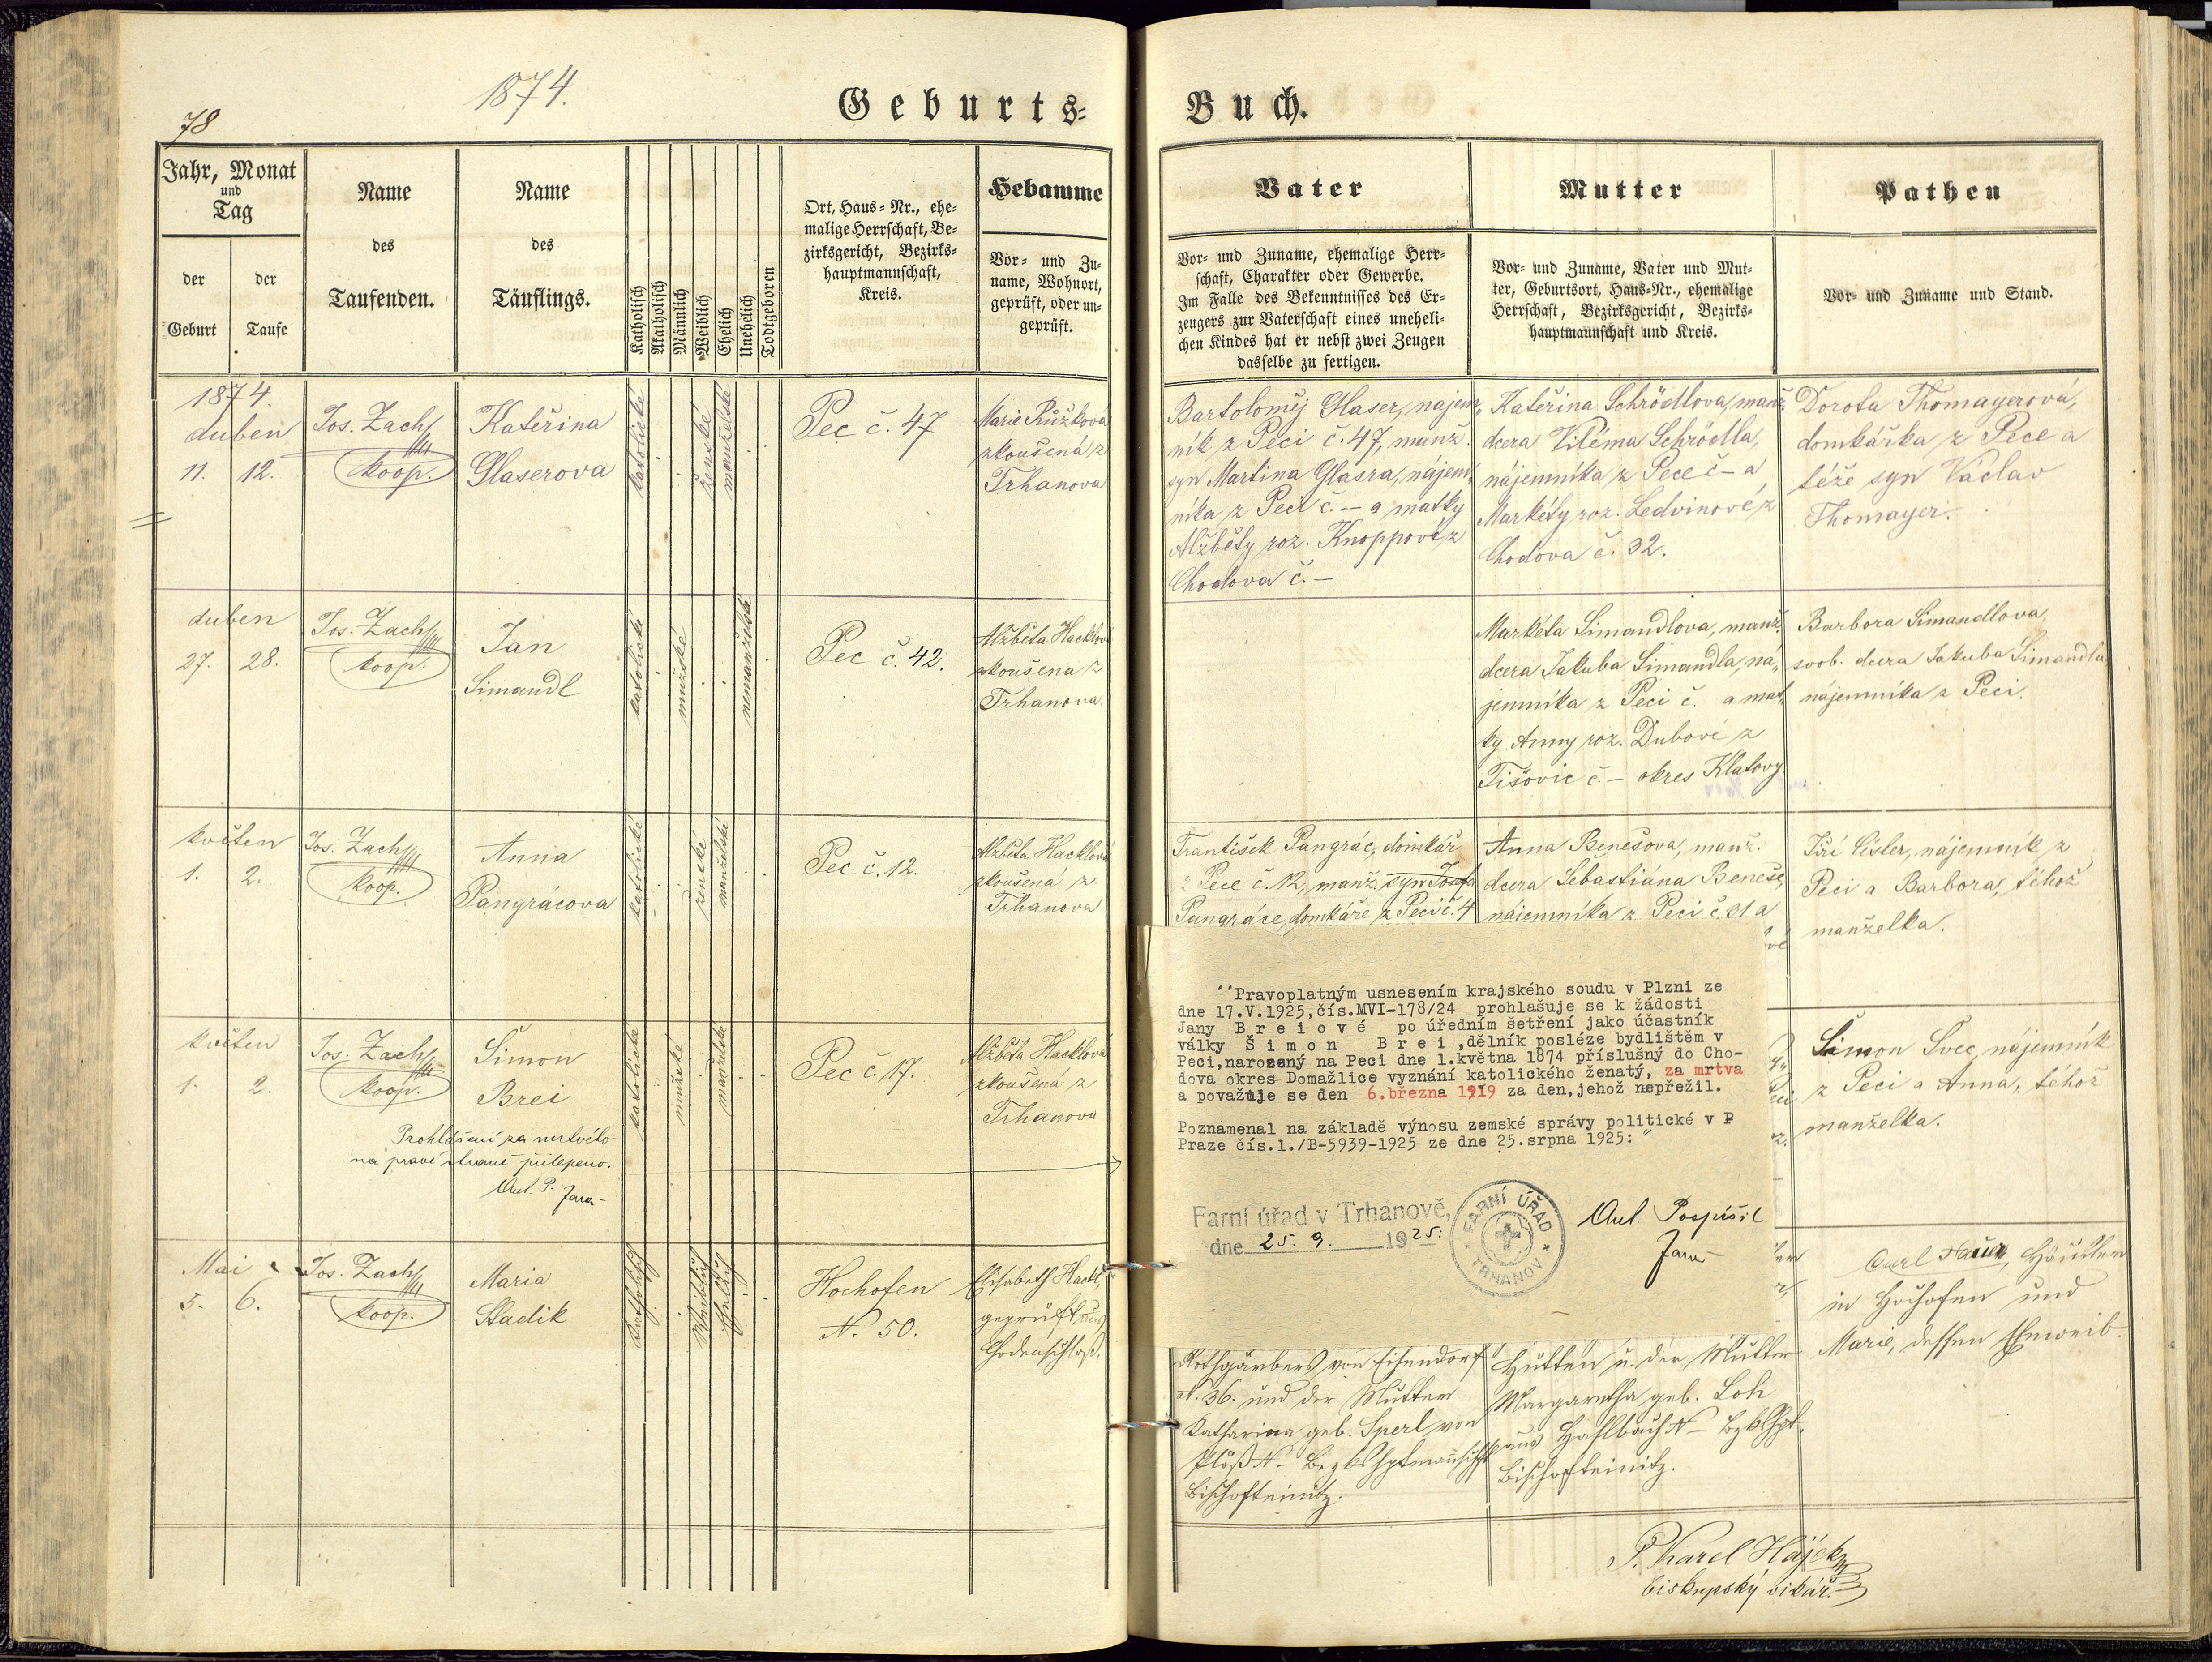 78
1874.
Geburts-
Buch.
Jahr, Monat
und
Tag
der
Geburt
der
Taufe
Name
des
Taufenden.
Name
des
Täuflings.
Katholisch
Akatholisch
Männlich
Weiblich
Ehelich
Unehelich
Todtgeboren
Ort, Haus-Nr., ehe-
malige Herrschaft, Be-
zirksgericht, Bezirks-
hauptmannschaft,
Kreis.
Hebamme
Vor- und Zu-
name, Wohnort,
geprüft, oder un-
geprüft.
Vater
Vor- und Zuname, ehemalige Herr-
schaft, Charakter oder Gewerbe.
Im Falle des Bekenntnisses des Er-
zeugers zur Vaterschaft eines uneheli-
chen Kindes hat er nebst zwei Zeugen
dasselbe zu fertigen.
Mutter
Vor- und Zuname, Vater und Mut-
ter, Geburtsort, Haus-Nr., ehemalige
Herrschaft, Bezirksgericht, Bezirks-
hauptmannschaft und Kreis.
Pathen
Vor- und Zuname und Stand.
1874.
duben
11. 12.
Jos. Zach
koop.
Kateřina
Glaserova
katolické
ženské
manželské
Pec č. 47
Marie Růžková
zkoušená z
Trhanova
Bartoloměj Glaser, nájem,
ník z Peci č. 47, manž.
syn Martina Glasra, nájem,
níka z Peci č. — a matky
Alžběty roz. Knoppové z
Chodova č. —
Kateřina Schrödlova, manž.
dcera Viléma Schrödla,
nájemníka z Pece č — a
Markéty roz. Ledvinové z
Chodova č. 32.
Dorota Thomayerová,
domkářka z Pece a
téže syn Václav
Thomayer.
duben
27. 28.
Jos. Zach
koop.
Jan
Simandl
katolické
mužské
nemanželské
Pec č. 42.
Alžběta Hacklová
zkoušena z
Trhanova.
Markéta Simandlova, manž.
dcera Jakuba Simandla, ná,
jemníka z Peci č. a mat,
ky Anny roz. Dubové z
Tišovic č. — okres Klatovy
Barbora Simandlova,
svob. dcera Jakuba Simandla
nájemníka z Peci.
květen
1. 2.
Jos. Zach
koop.
Anna
Pangrácova
katolické
ženské
manželské
Pec č. 12.
Alžběta Hacklová
zkoušená z
Trhanova
František Pangrác, domkář
z Pece č. 12, manž. syn Josefa
Pangráce, domkáře z Peci č. 4
Anna Benešova, manž.
dcera Šebastiána Beneše,
nájemníka z Peci č. 31 a
Jiří Cisler, nájemník z
Peci a Barbora, téhož
manželka.
květen
1. 2.
Jos. Zach
koop.
Šimon
Brei
katolické
mužské
manželské
Pec č. 17.
Alžběta Hacklová
zkoušená z
Trhanova
Prohlášení za mrtvého
na pravé straně přilepeno.
Ant. P. farar
Šimon Švec, nájemník
z Peci a Anna, téhož
manželka.
"Pravoplatným usnesením krajského soudu v Plzni ze
dne 17.V.1925,čís.MVI-178/24 prohlašuje se k žádosti
Jany Breiové po úředním šetření jako účastník
války Šimon Brei,dělník posléze bydlištěm v
Peci,narozený na Peci dne 1.května 1874 příslušný do Cho-
dova okres Domažlice vyznání katolického ženatý, za mrtva
a považuje se den 6.března 1919 za den,jehož nepřežil.
Poznamenal na základě výnosu zemské správy politické v P
Praze čís.1./B-5939-1925 ze dne 25.srpna 1925:"
Farní úřad v Trhanově,
dne 25. 9. 1925.
FARNÍ ÚŘAD
TRHANOV
Ant. Pospíšil
farar
Mai
5. 6.
Jos. Zach
koop.
Maria
Stadik
Katholisch
Weiblich
Ehelich
Hochofen
N. 50.
Elisabeth Hackl,
geprüft aus
Chodenschloß.
Rothgärbers von Eisendorf
N. 36. und der Mutter
Katharina geb. Sperl von
Plöß N — Bezkshptmannschft
Bischofteinitz.
Hütten u. der Mutter
Margaretha geb. Loh
aus Haslbach N — Bzkshpt.
Bischofteinitz.
Carl Hauer, Häusler
in Hochofen und
Marie, dessen Eheweib.
P. Karel Hájek
biskupský vikář.